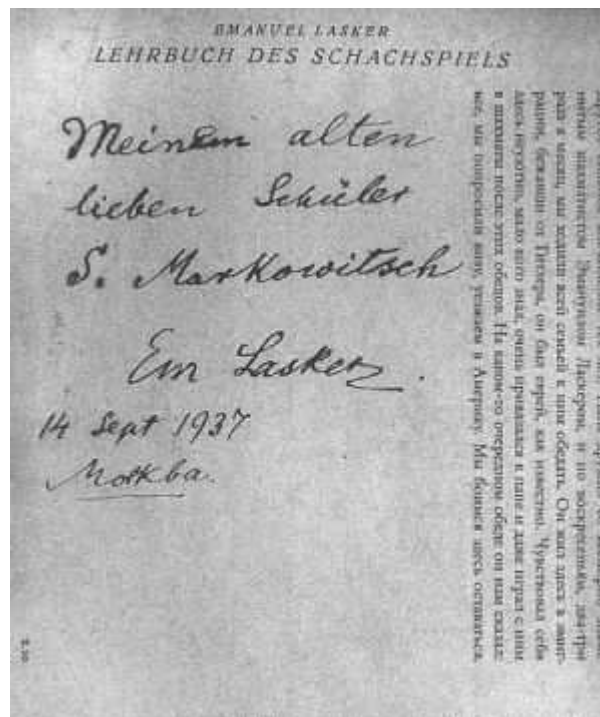 EMANUEL LASKER
LEHRBUCH DES SCHACHSPIELS
Meinem alten
lieben Schüler
S. Markowitsch
Em Lasker.
14 Sept 1937
Москва.
нитым шахматистом Эмануилом Ласкером, и по воскресеньям, два-три
раза в месяц, мы ходили всей семьей к ним обедать. Он жил здесь в эмиг-
рации, бежавши от Гитлера, он был еврей, как известно. Чувствовал себя
здесь неуютно, мало кого знал, очень привязался к папе и даже играл с ним
в шахматы после этих обедов. На каком-то очередном обеде он нам сказал:
все, мы попросили визу, уезжаем в Америку. Мы боимся здесь оставаться.